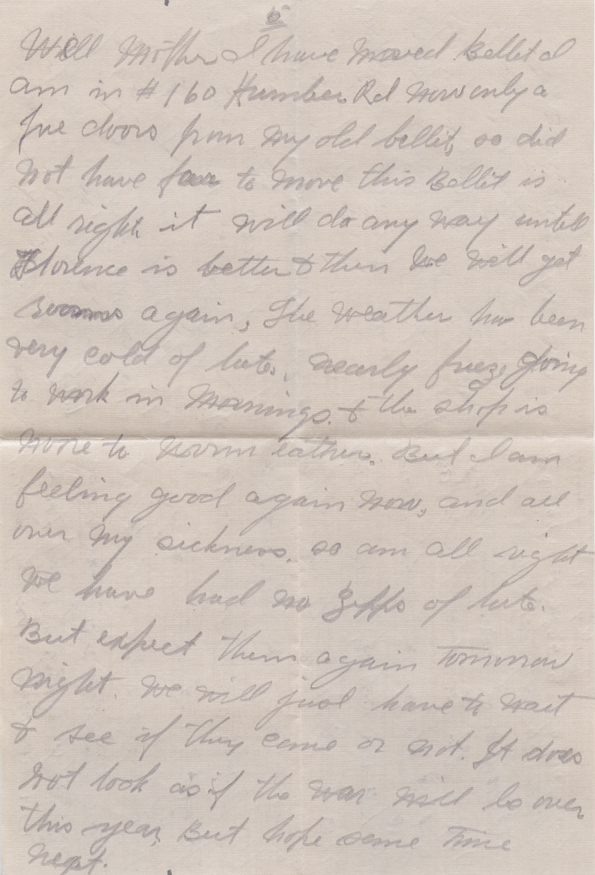 5
Well Mother I have moved Bellet I
am in #160 Humber Rd now only a
fue doors from my old bellit, so did
not have far to move this Bellit is
all right it will do any way untill
Florence is better & then we will get
rooms again, The weather has been
very cold of late, nearly freeze going
to work in Mornings. & the shop is
none to worm eather. But I am
feeling good again now, and all
over my sickness. so am all right
We have had no Zepps of late.
But expect them again tomorrow
Night. We will just have to wait
& see if they come or not. It does
not look as if the war will be over
this year, But hope some time
next.